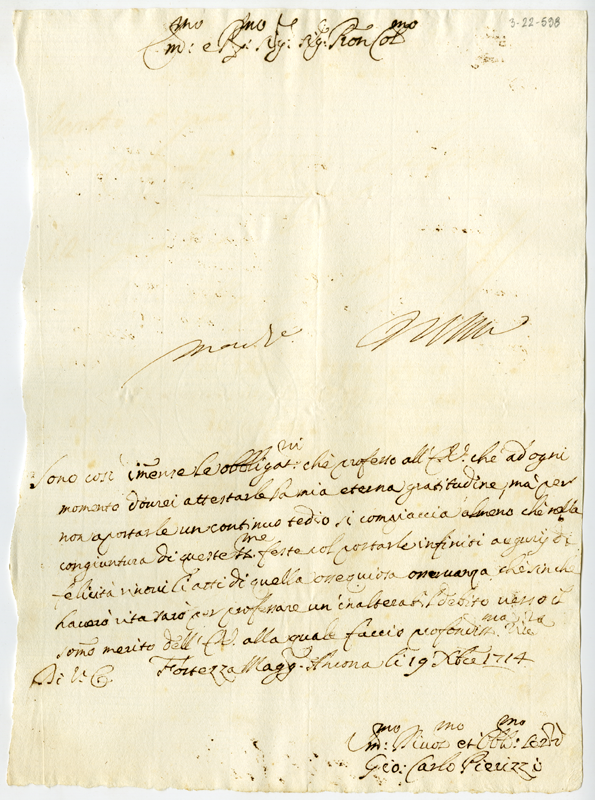 3-22-598
Ill:mo e R:mo Sig: Sig: Pron Col:mo
Sono così imense le obbligat:ni che professo all' che ad'ogni
momento dourei attestarle la mia eterna gratitudine, mà per
non aportarle un continuo tedio si compiaccia almeno che nella
congiuntura di queste SS:me feste col portarle infiniti augurij di
felicità rinovi li atti di quella ossequiosa osseruanza, che sin che
haverò vita sarò per professare un' inalterat: debito verso il
somo merito dell' alla quale faccio profondis:ma riu:za
Di V. Fortezza Magg:re Ancona li 19 Xbre 1714
Um:mo Diuot:mo et Obb:mo Ser:
Gio: Carlo Pierizzi